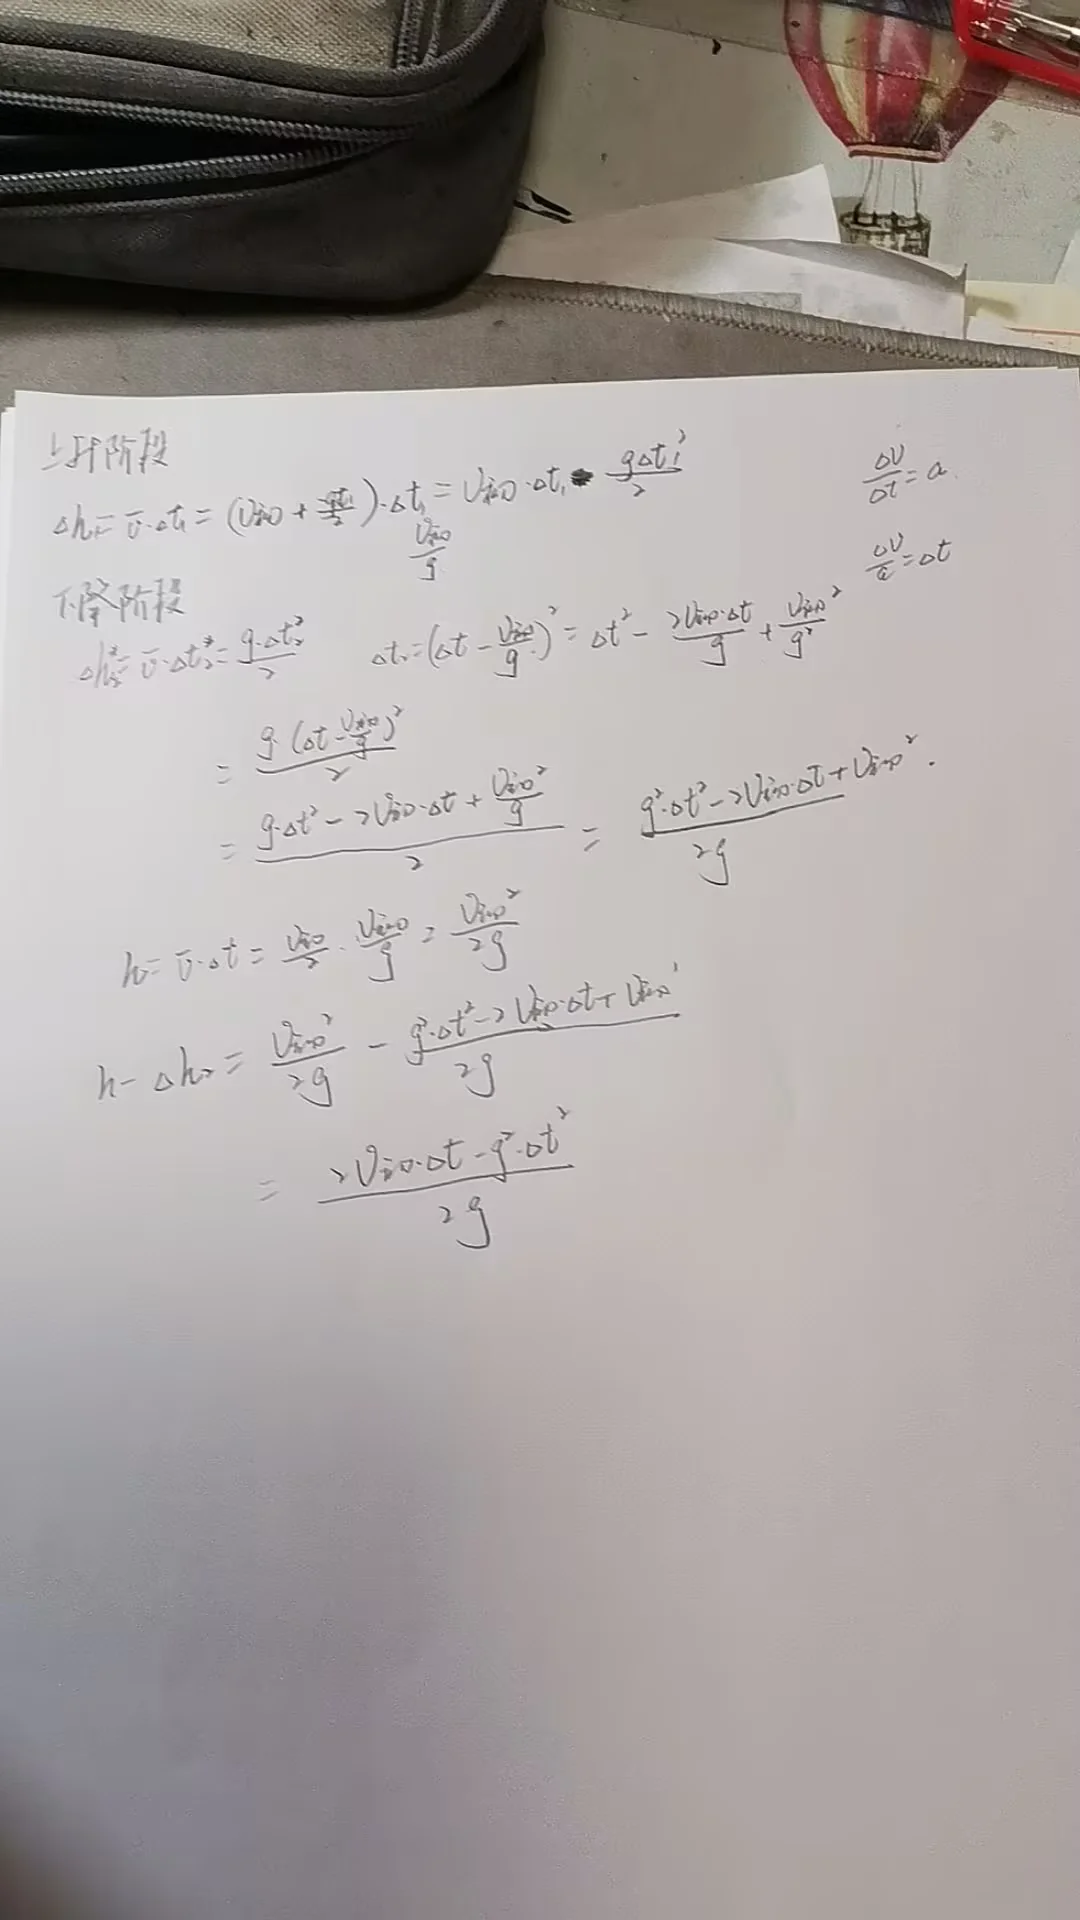 上升阶段
Δh₁ = v̄·Δt₁ = (v初 + gt₁/2)·Δt₁ = v初·Δt₁ - gΔt₁²/2
v初/g
ΔV/Δt = a
ΔV/a = Δt
下降阶段
Δh₂ = v̄·Δt₂ = g·Δt₂²/2
Δt₂ = (Δt - v初/g)² = Δt² - 2v初·Δt/g + v初²/g²
= g·(Δt - v初/g)²/2
= (g·Δt² - 2v初·Δt + v初²/g)/2 = (g²·Δt² - 2v初·Δt + v初²)/2g
h = v̄·Δt = v初/2 · v初/g = v初²/2g
h - Δh₂ = v初²/2g - (g²·Δt² - 2v初·Δt + v初²)/2g
= (2v初·Δt - g²·Δt²)/2g